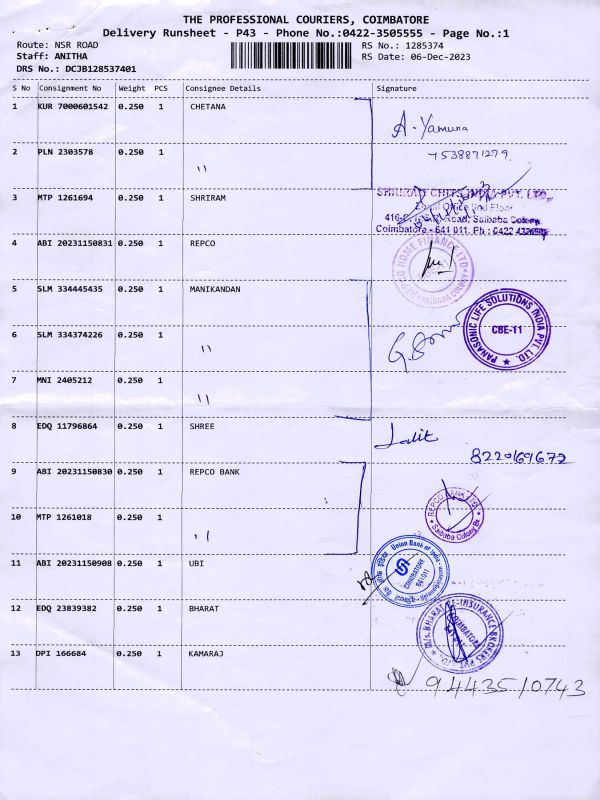 THE PROFESSIONAL COURIERS, COIMBATORE
Delivery Runsheet - P43 - Phone No.:0422-3505555 - Page No.:1
Route: NSR ROAD RS No.: 1285374
Staff: ANITHA RS Date: 06-Dec-2023
DRS No.: DCJB128537401
S No Consignment No Weight PCS Consignee Details Signature
1 KUR 7000601542 0.250 1 CHETANA
A. Yamuna
7538871279.
2 PLN 2303578 0.250 1 "
3 MTP 1261694 0.250 1 SHRIRAM
SHRIRAM CHITS INDIA PVT. LTD.,
Office IInd Floor
Road, Saibaba Colony
Coimbatore - 641 011. Ph : 0422
4 ABI 20231150831 0.250 1 REPCO
REPCO HOME FINANCE LTD
SAIBABA COLONY
5 SLM 334445435 0.250 1 MANIKANDAN
PANASONIC LIFE SOLUTIONS INDIA PVT. LTD.
CBE-11
6 SLM 334374226 0.250 1 "
7 MNI 2405212 0.250 1 "
8 EDQ 11796864 0.250 1 SHREE
Lalit
8220169672
9 ABI 20231150830 0.250 1 REPCO BANK
REPCO BANK LTD
Saibaba Colony Br
10 MTP 1261018 0.250 1 "
11 ABI 20231150908 0.250 1 UBI
Union Bank of India
COIMBATORE
641 011
12 EDQ 23839382 0.250 1 BHARAT
M/s. BHARAT RE-INSURANCE BROKERS PVT. LTD.
COIMBATORE
13 DPI 166684 0.250 1 KAMARAJ
9443510743